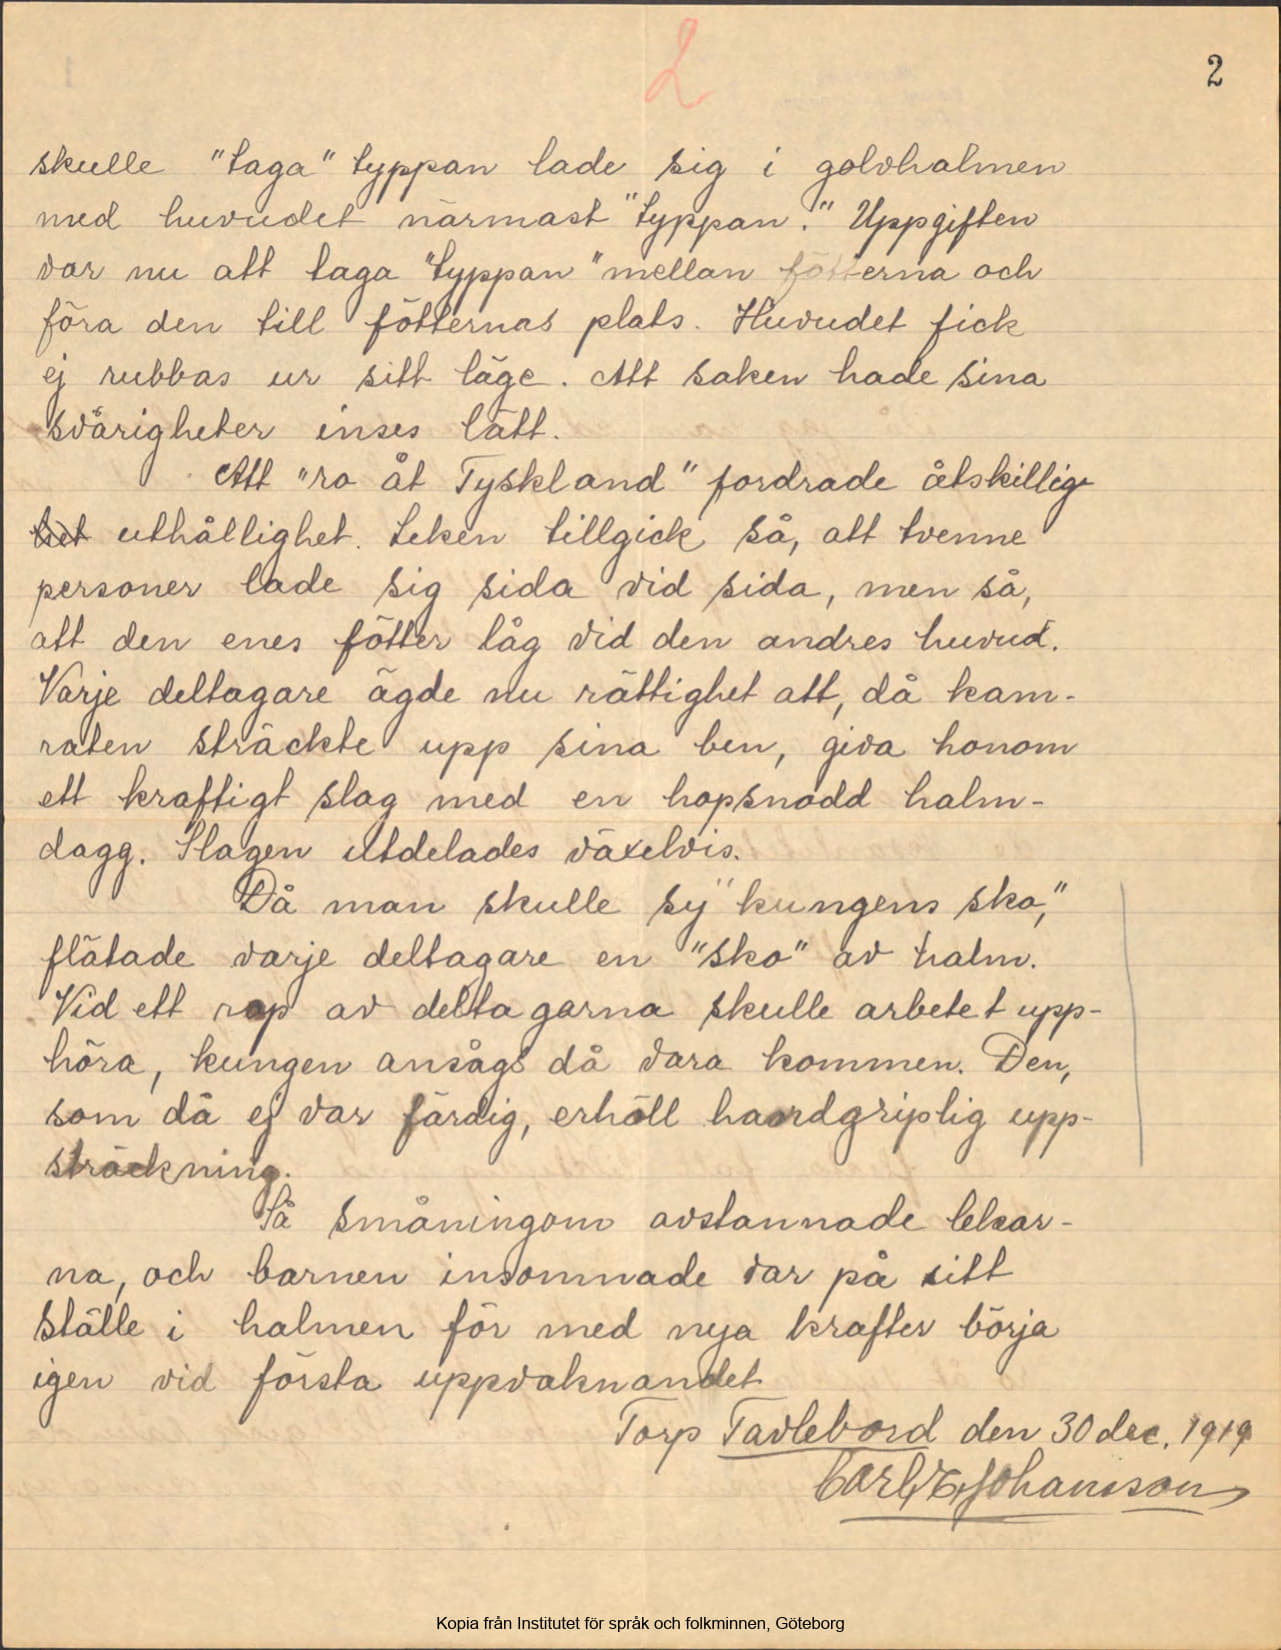 2
2
skulle "taga" typpan lade sig i golvhalmen
med huvudet närmast "typpan." Uppgiften
var nu att taga "typpan" mellan fötterna och
föra den till fötternas plats. Huvudet fick
ej rubbas ur sitt läge. Att saken hade sina
svårigheter inses lätt.
Att "ro åt Tyskland" fordrade åtskillig
uthållighet. Leken tillgick så, att tvenne
personer lade sig sida vid sida, men så,
att den enes fötter låg vid den andres huvud.
Varje deltagare ägde nu rättighet att, då kam-
raten sträckte upp sina ben, giva honom
ett kraftigt slag med en hopsnodd halm-
dagg. Slagen utdelades växelvis.
Då man skulle sy "kungens sko,"
flätade varje deltagare en "sko" av halm.
Vid ett rop av deltagarna skulle arbetet upp-
höra, kungen ansågs då vara kommen. Den,
som då ej var färdig, erhöll handgriplig upp-
sträckning.
Så småningom avstannade lekar-
na, och barnen insomnade var på sitt
ställe i halmen för med nya krafter börja
igen vid första uppvaknandet
Torp Tavlebord den 30 dec. 1919
Carl E. Johansson
Kopia från Institutet för språk och folkminnen, Göteborg